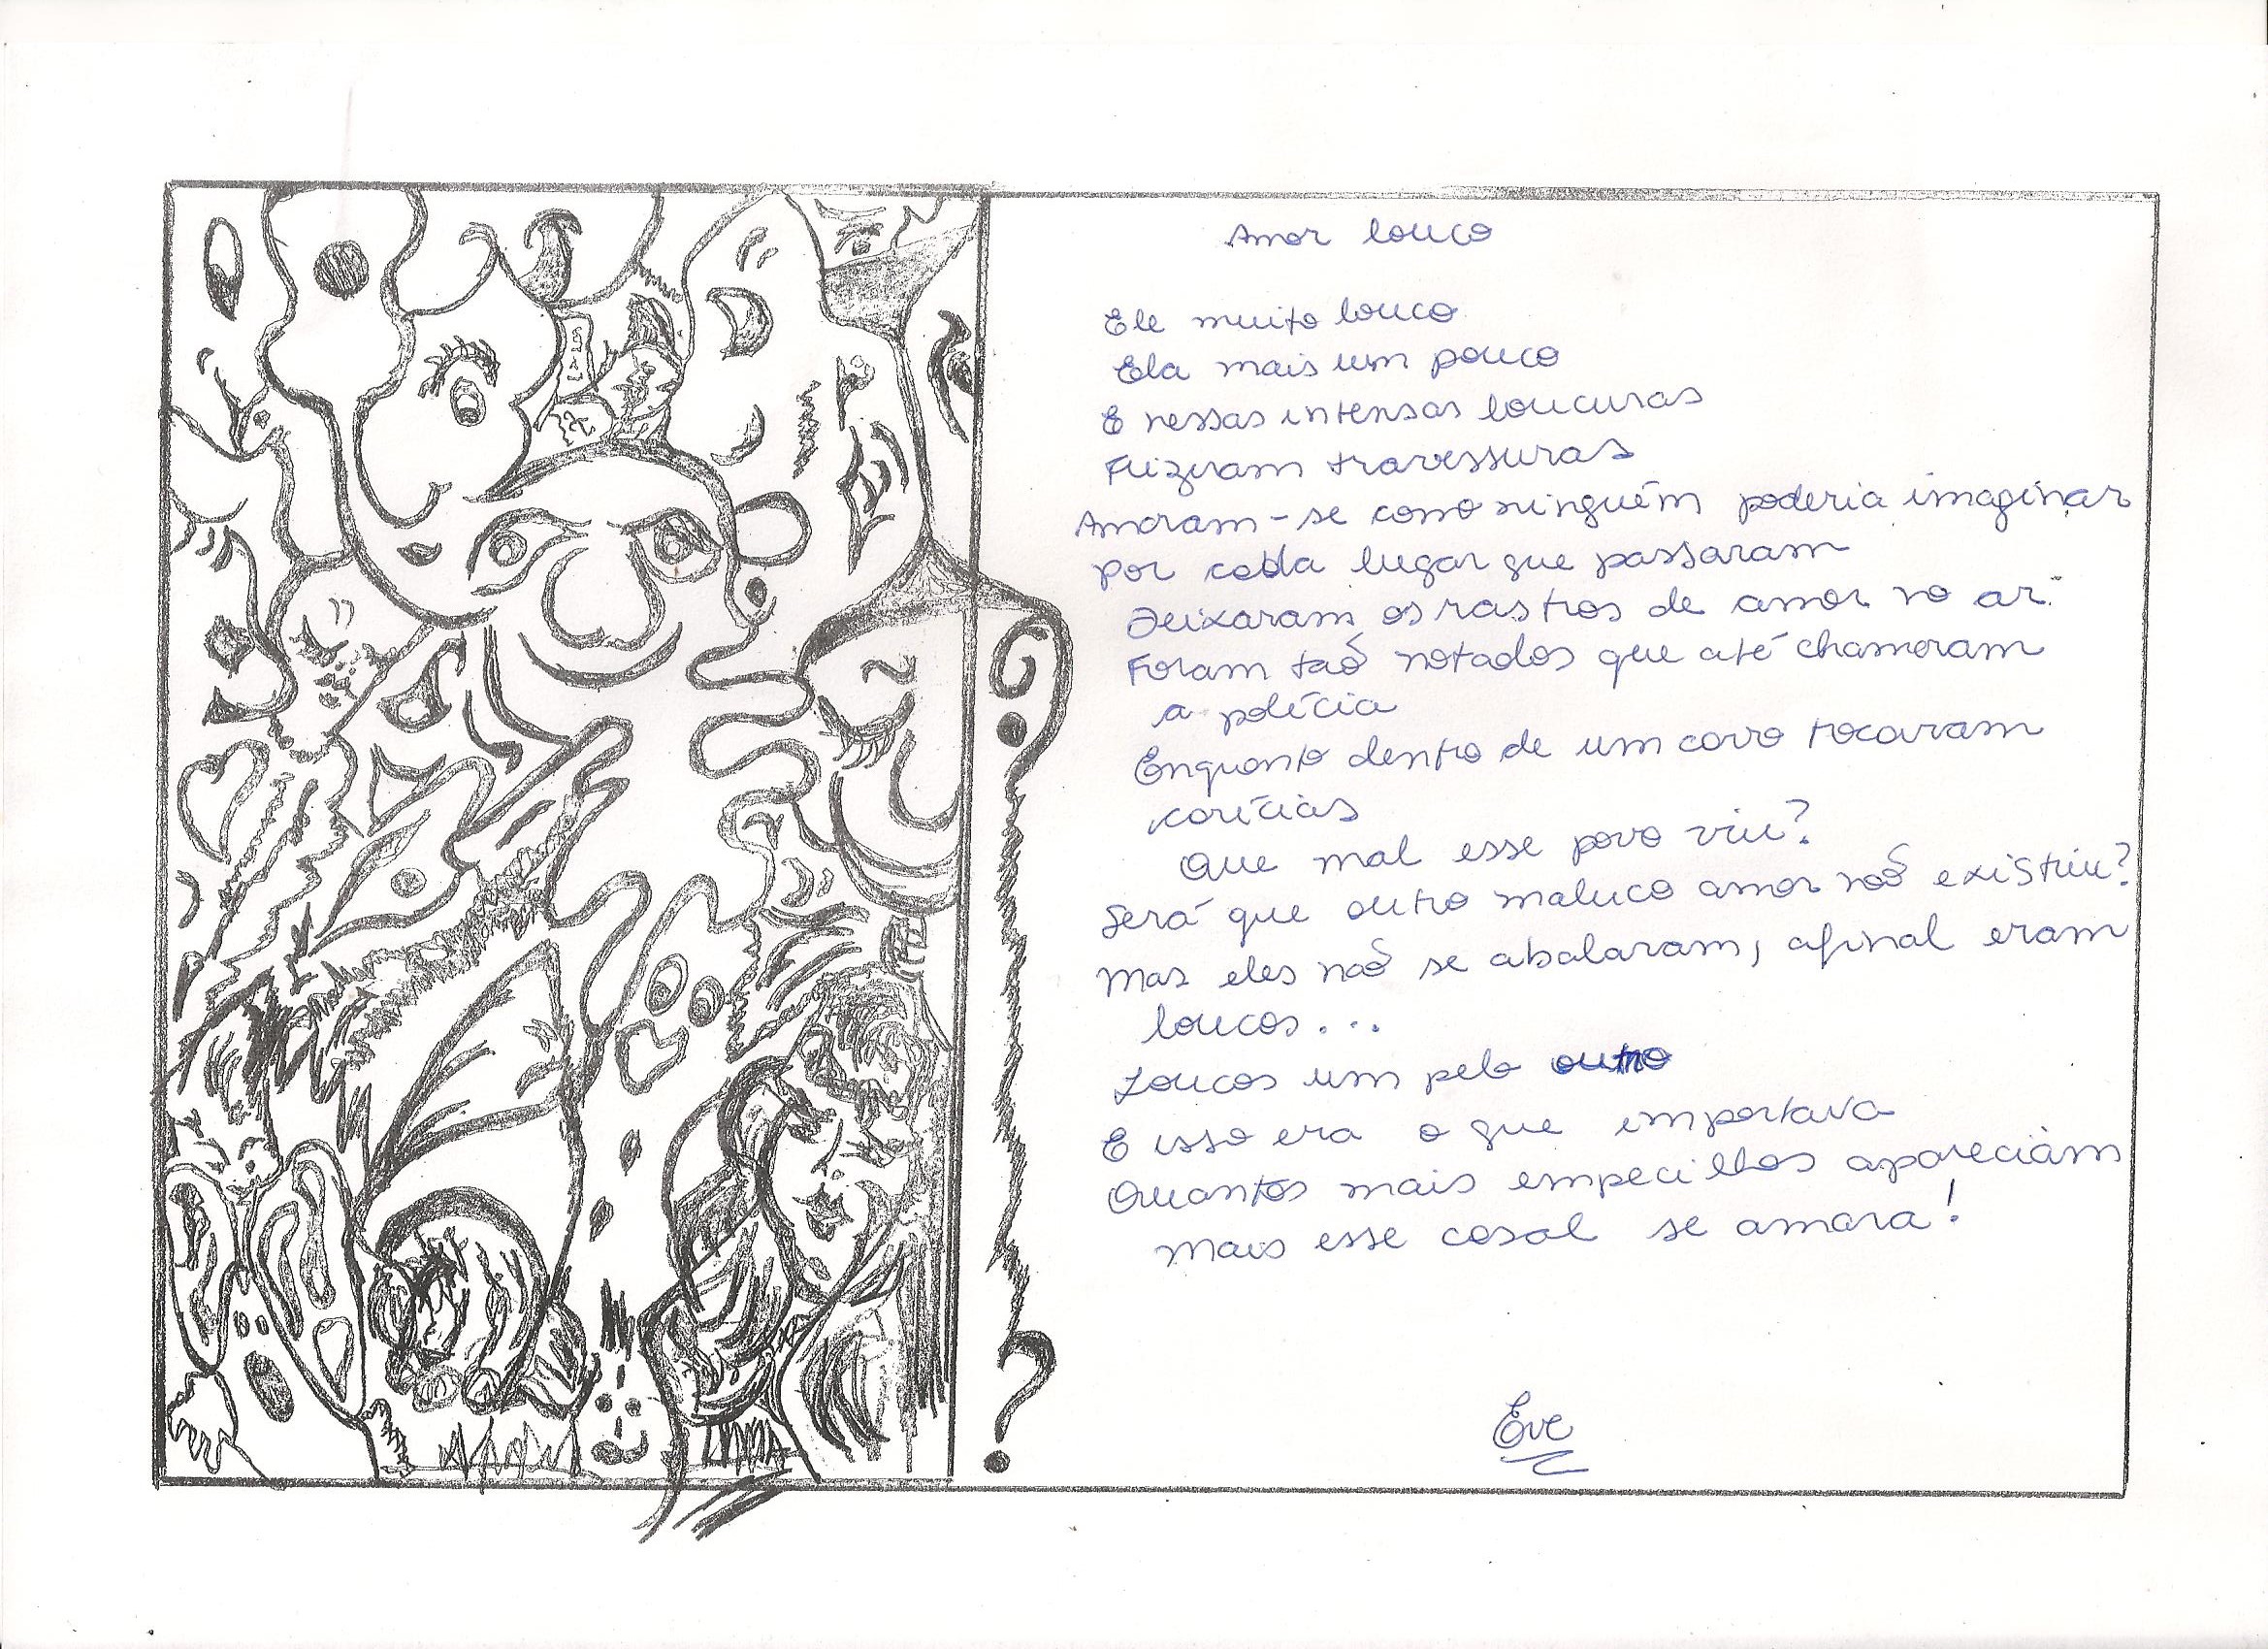 Amor louco
Ele muito louco
Ela mais um pouco
E nessas intensas loucuras
Fizeram travessuras
Amaram-se como ninguém poderia imaginar
por cada lugar que passaram
Deixaram os rastros de amor no ar.
Foram taõ notados que até chamaram
a polícia
Enquanto dentro de um carro trocaram
carícias
Que mal esse povo viu?
Será que outro maluco amor naõ existiu?
Mas eles naõ se abalaram, afinal eram
loucos...
Loucos um pelo outro
E isso era o que importava
Quantos mais empecilhos apareciam
mais esse casal se amara!
Eve